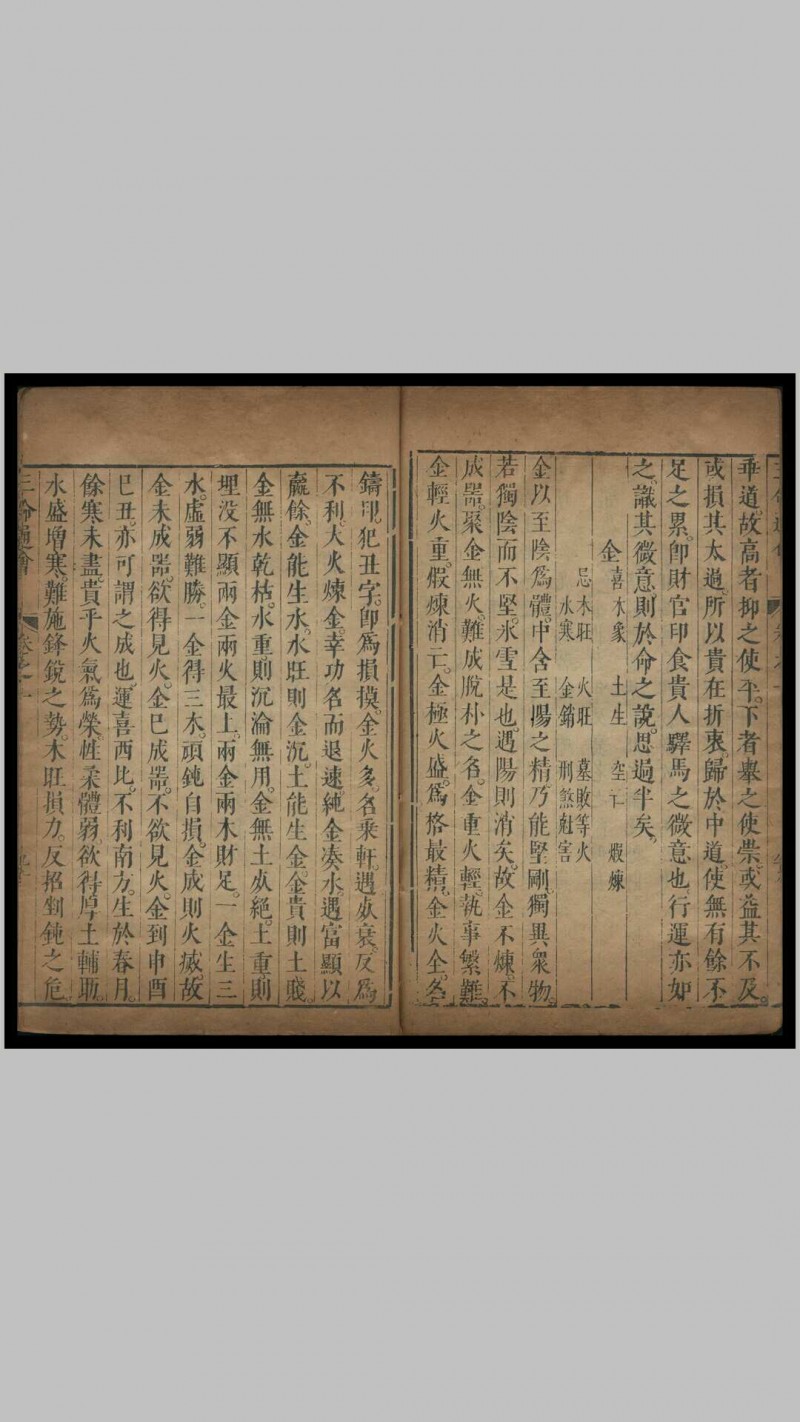 垂道。故高者抑之使平。下者舉之使崇。或益其不及。
或損其太過。所以貴在折衷。歸於中道。使無有餘不
足之累。即財官印食貴人驛馬之微意也。行運亦如
之。識其微意。則於命之說。思過半矣。
金 喜 木象 土生 空亡 煆煉
忌 木旺 火旺 墓敗等火
水寒 金銷 刑煞尅害
金以至陰爲體。中含至陽之精。乃能堅剛。獨異衆物。
若獨陰而不堅。冰雪是也。遇陽則消矣。故金不煉。不
成器。聚金無火。難成脫朴之名。金重火輕。執事繁難。
金輕火重。煆煉消亡。金極火盛。爲格最精。金火全。名
鑄印。犯丑字。即爲損模。金火多。名乘軒。遇死衰。反爲
不利。大火煉金。幸功名而退速。純金湊水。遇富顯以
贏餘。金能生水。水旺則金沉。土能生金。金貴則土賤。
金無水乾枯。水重則沉淪無用。金無土死絕。土重則
埋没不顯。兩金兩火最上。兩金兩木財足。一金生三
水。虛弱難勝。一金得三木。頑鈍自損。金成則火滅。故
金未成器。欲得見火。金巳成器。不欲見火。金到申酉
巳丑。亦可謂之成也。運喜西北。不利南方。生於春月。
餘寒未盡。貴乎火氣爲榮。性柔體弱。欲得厚土輔助。
水盛增寒。難施鋒銳之勢。木旺損力。反招剉鈍之危。
三命通會 卷之一